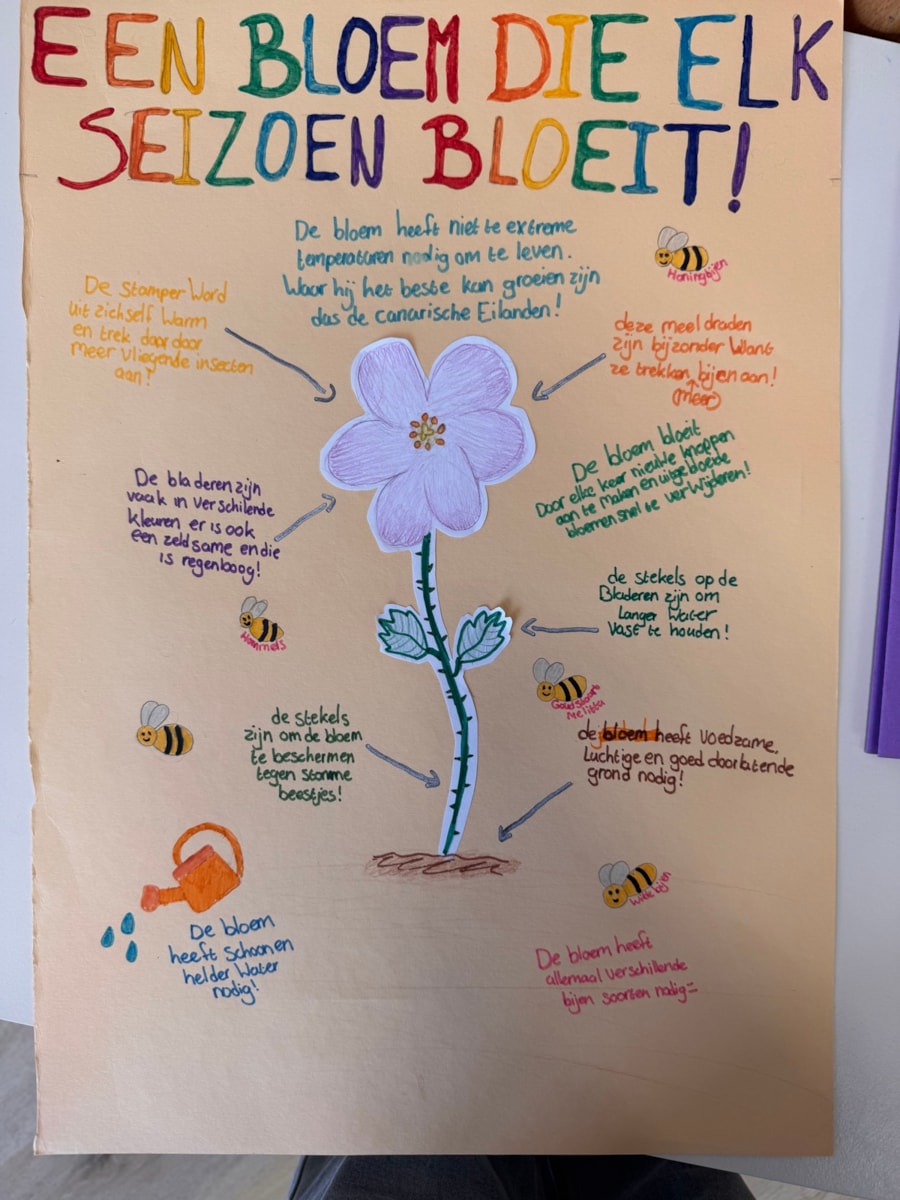 EEN BLOEM DIE ELK
SEIZOEN BLOEIT!
De bloem heeft niet te extreme
temperaturen nodig om te leven.
Waar hij het beste kan groeien zijn
das de canarische Eilanden!
Honingbijen
De Stamper Word
uit zichself warm
en trek daar door
meer vliegende insecten
aan?
deze meel draden
zijn bijzonder Want
ze trekken bijen aan!
(meer)
De bloem bloeit
Door elke keer nieuwe knoppen
aan te maken en uitgebloeide
bloemen snel te verwijderen!
De bladeren zijn
vaak in verschilende
kleuren er is ook
een zeldsame en die
is regenboog!
de stekels op de
Bladeren zijn om
Langer Water
Vast te houden!
Hommels
Melitta
de stekels
zijn om de bloem
te beschermen
tegen stomme
beestjes!
de bloem heeft voedzame,
Luchtige en goed doorlatende
grond nodig!
De bloem
heeft Schoon en
helder Water
nodig!
De bloem heeft
allemaal verschillende
bijen soorten nodig